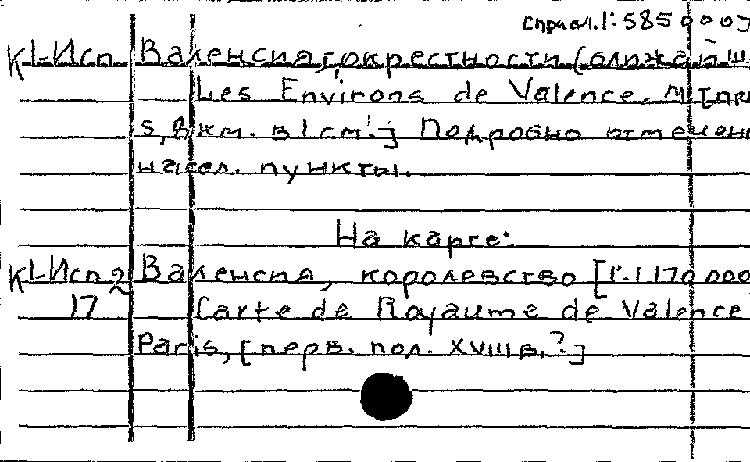 Справл. 1:585000]
К1-Исп Валенсия, окрестности (ближайш
Les Environs de Valence. М
5,8 км. в 1 см!] Подробно отмечен
насел. пункты.
На карте:
К1-Исп 2 Валенсия, королевство [1:1170000
17 Carte de Royaume de Valence
Paris, [перв. пол. XVIII в.?]